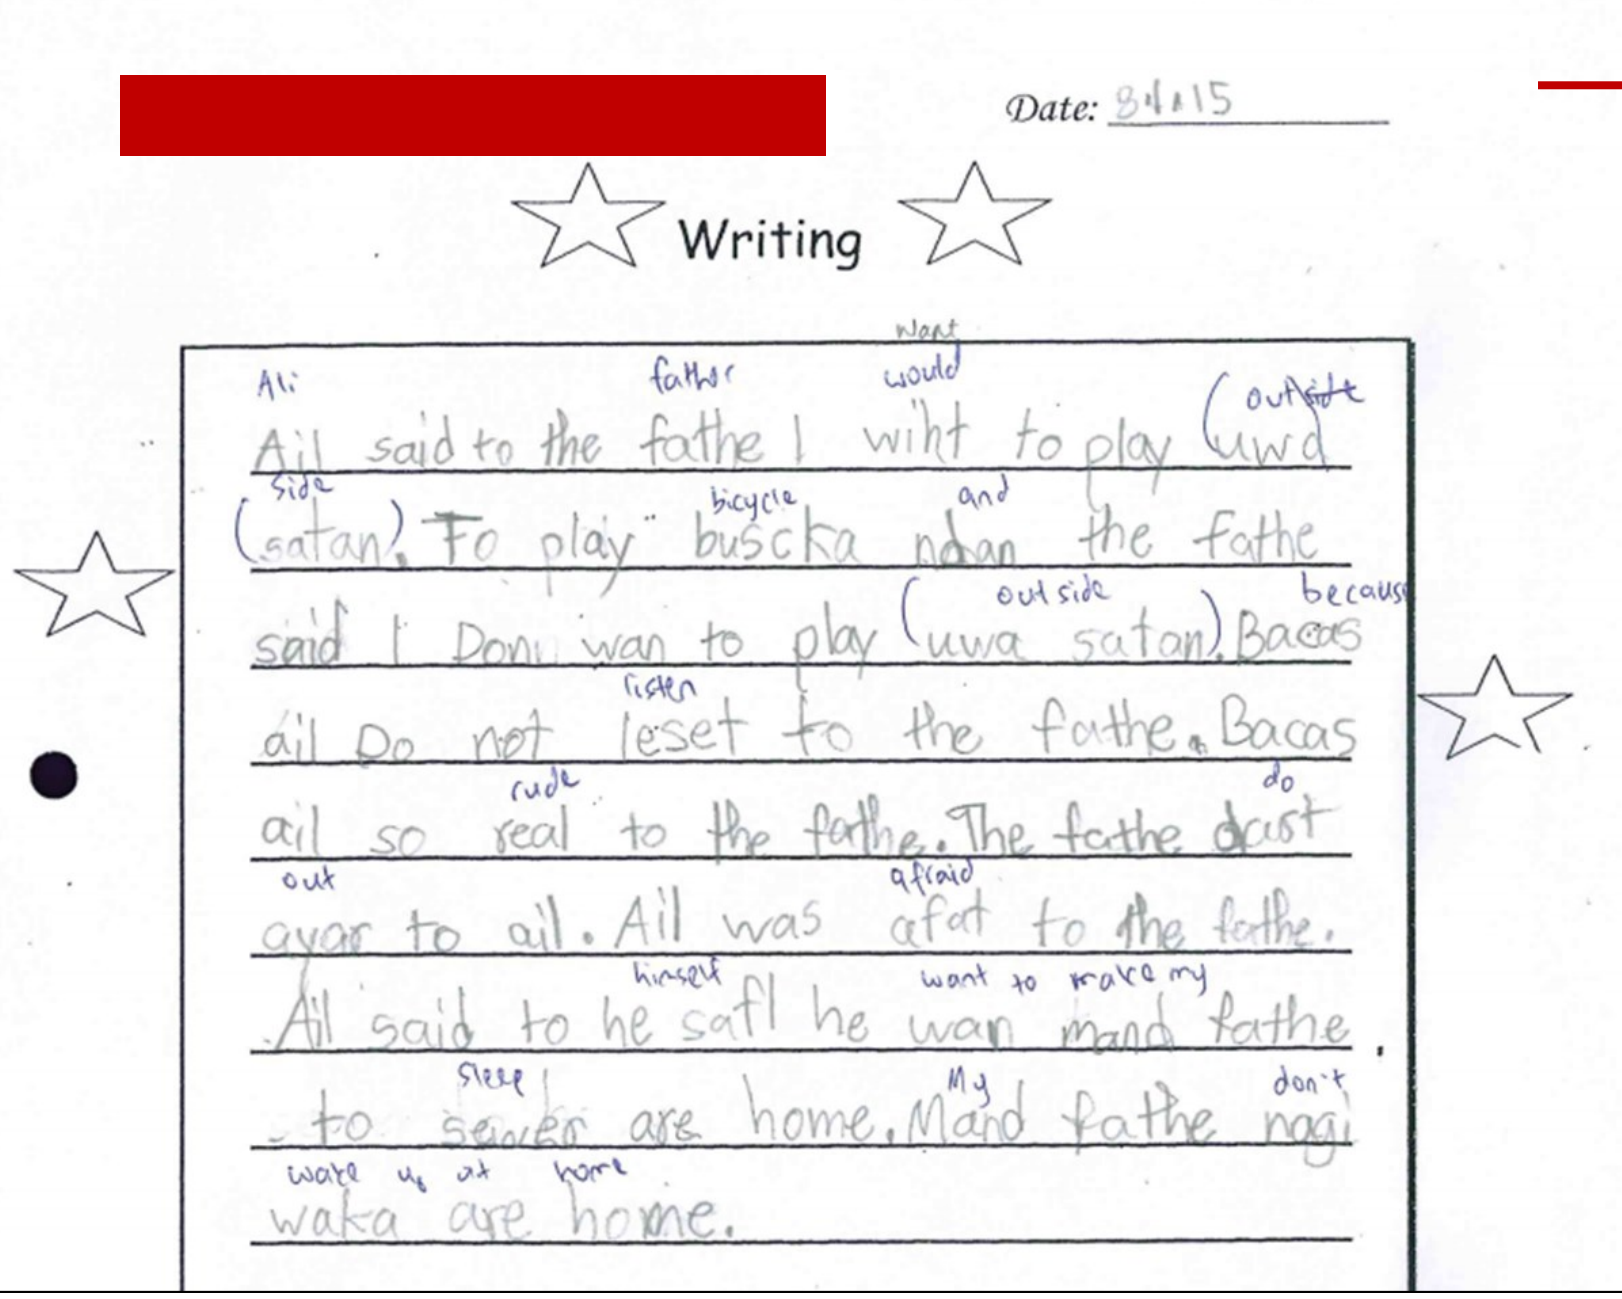 Date: 8.1.15
Writing
want
Ali father would outside
Ail said to the fathe I wiht to play (uwa
side bicycle and
satan). To play buscka ndan the fathe
outside because
said I Donn wan to play (uwa satan). Bacas
listen
ail Do not leset to the fathe. Bacas
rude do
ail so real to the fathe. The fathe dast
out afraid
ayar to ail. Ail was afat to the fathe.
himself want to make my
Ail said to he safl he wan mand fathe
sleep My don't
to are home. Mand fathe nagi
wake up at home
waka are home.